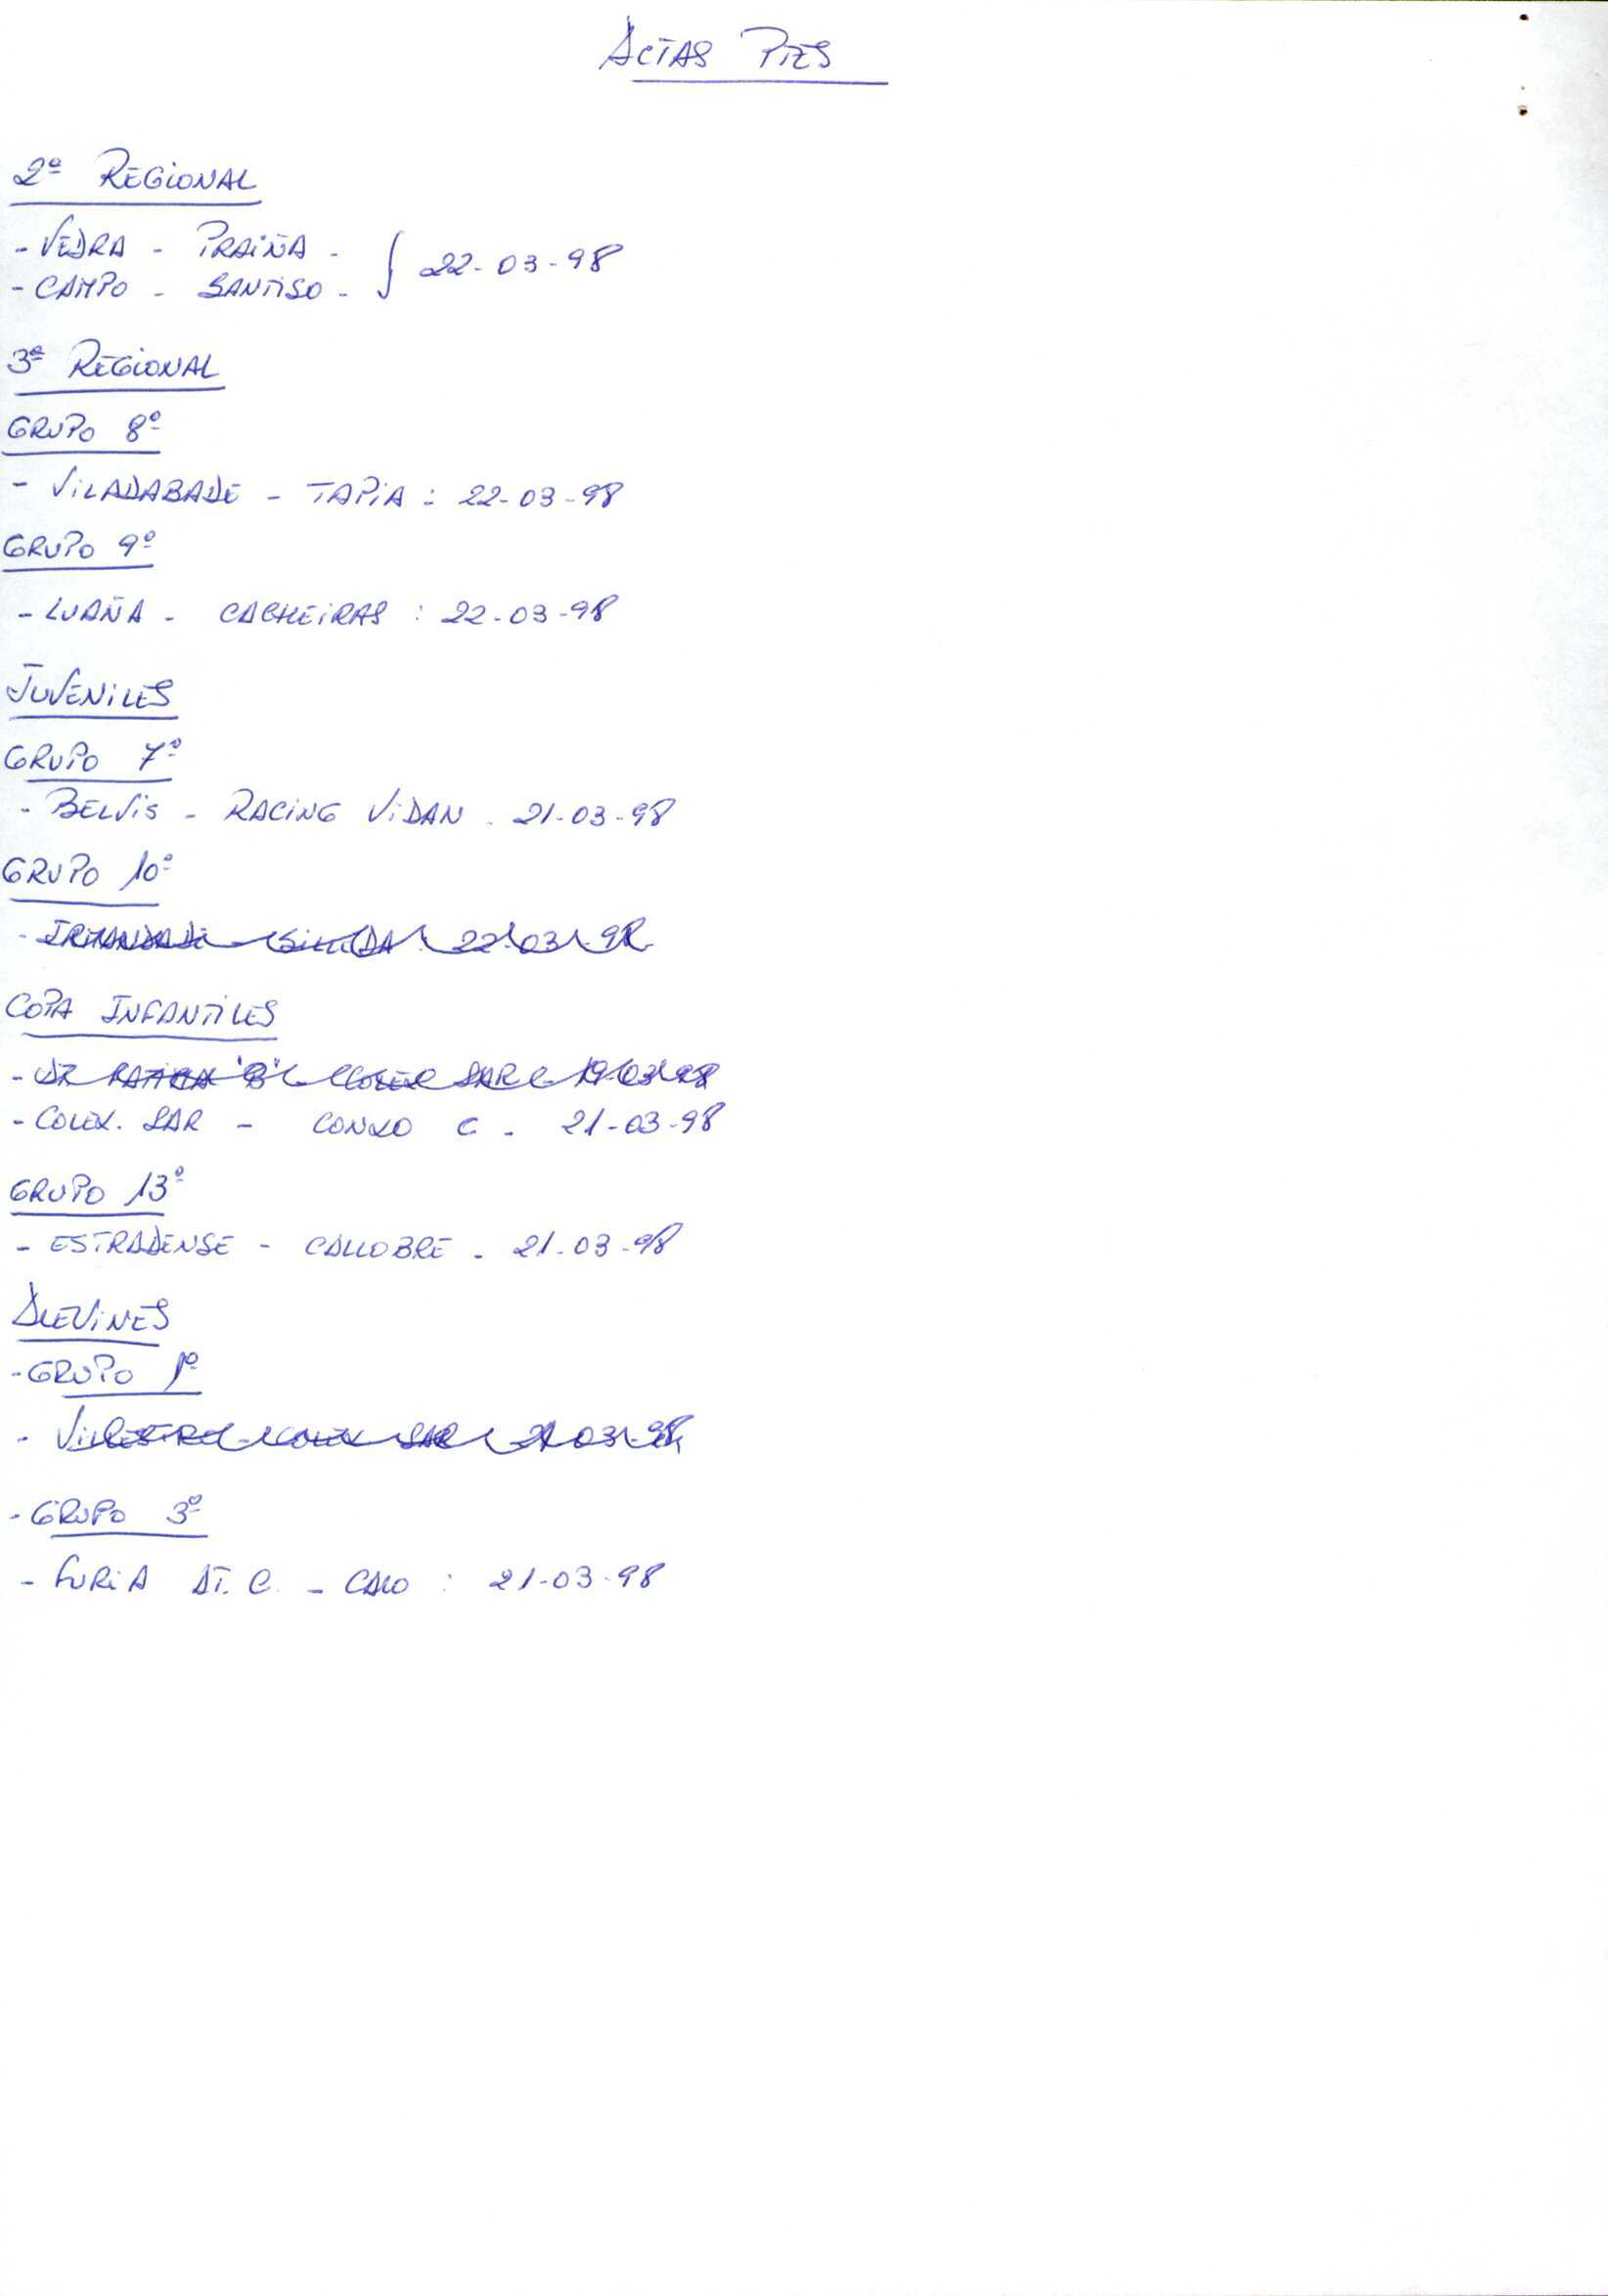 ACTAS PTES
2ª REGIONAL
- VEDRA - PRAIÑA -
- CAMPO - SANTISO - } 22-03-98
3ª REGIONAL
GRUPO 8º
- VILADABADE - TAPIA : 22-03-98
GRUPO 9º
- LUAÑA - CACHEIRAS : 22-03-98
JUVENILES
GRUPO 7º
- BELVIS - RACING VIDAN - 21-03-98
GRUPO 10º
- IRMANDADE - SILLEDA - 22-03-98
COPA INFANTILES
- "B" - SAR - 19-03-98
- COLEX. SAR - CONXO C - 21-03-98
GRUPO 13º
- ESTRADENSE - CALLOBRE - 21-03-98
ALEVINES
- GRUPO 1º
- VILLESTRO - COLEX SAR - 21-03-98
- GRUPO 3º
- FURIA AT. C. - CALO : 21-03-98